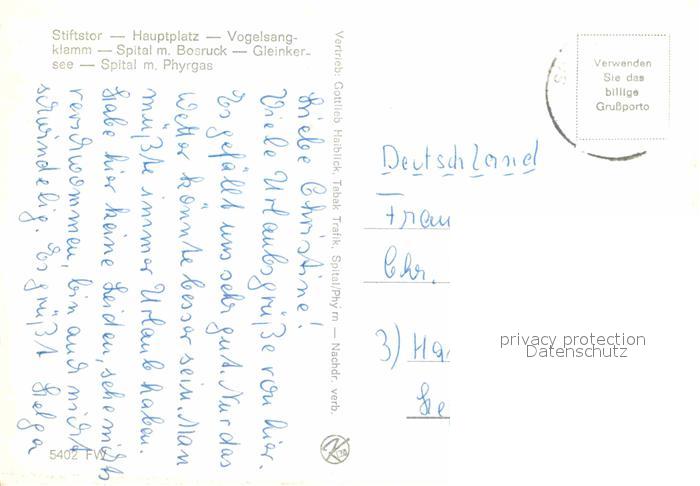 Stiftstor — Hauptplatz — Vogelsang-
klamm — Spital m. Bosruck — Gleinker-
see — Spital m. Phyrgas
Liebe Christine!
Viele Urlaubsgrüße von hier.
Es gefällt uns sehr gut. Nur das
Wetter könnte besser sein. Man
müßte immer Urlaub haben.
Habe hier keine Leiden, sehe nicht
verschwommen, bin auch nicht
schwindelig. Es grüßt Helga
5402 FW
Vertrieb: Gottlieb Haiblick, Tabak Trafik, Spital/Phyrn — Nachdr. verb.
Verwenden
Sie das
billige
Grußporto
Deutschland
Frau
Chr.
3) Ha
privacy protection
Datenschutz